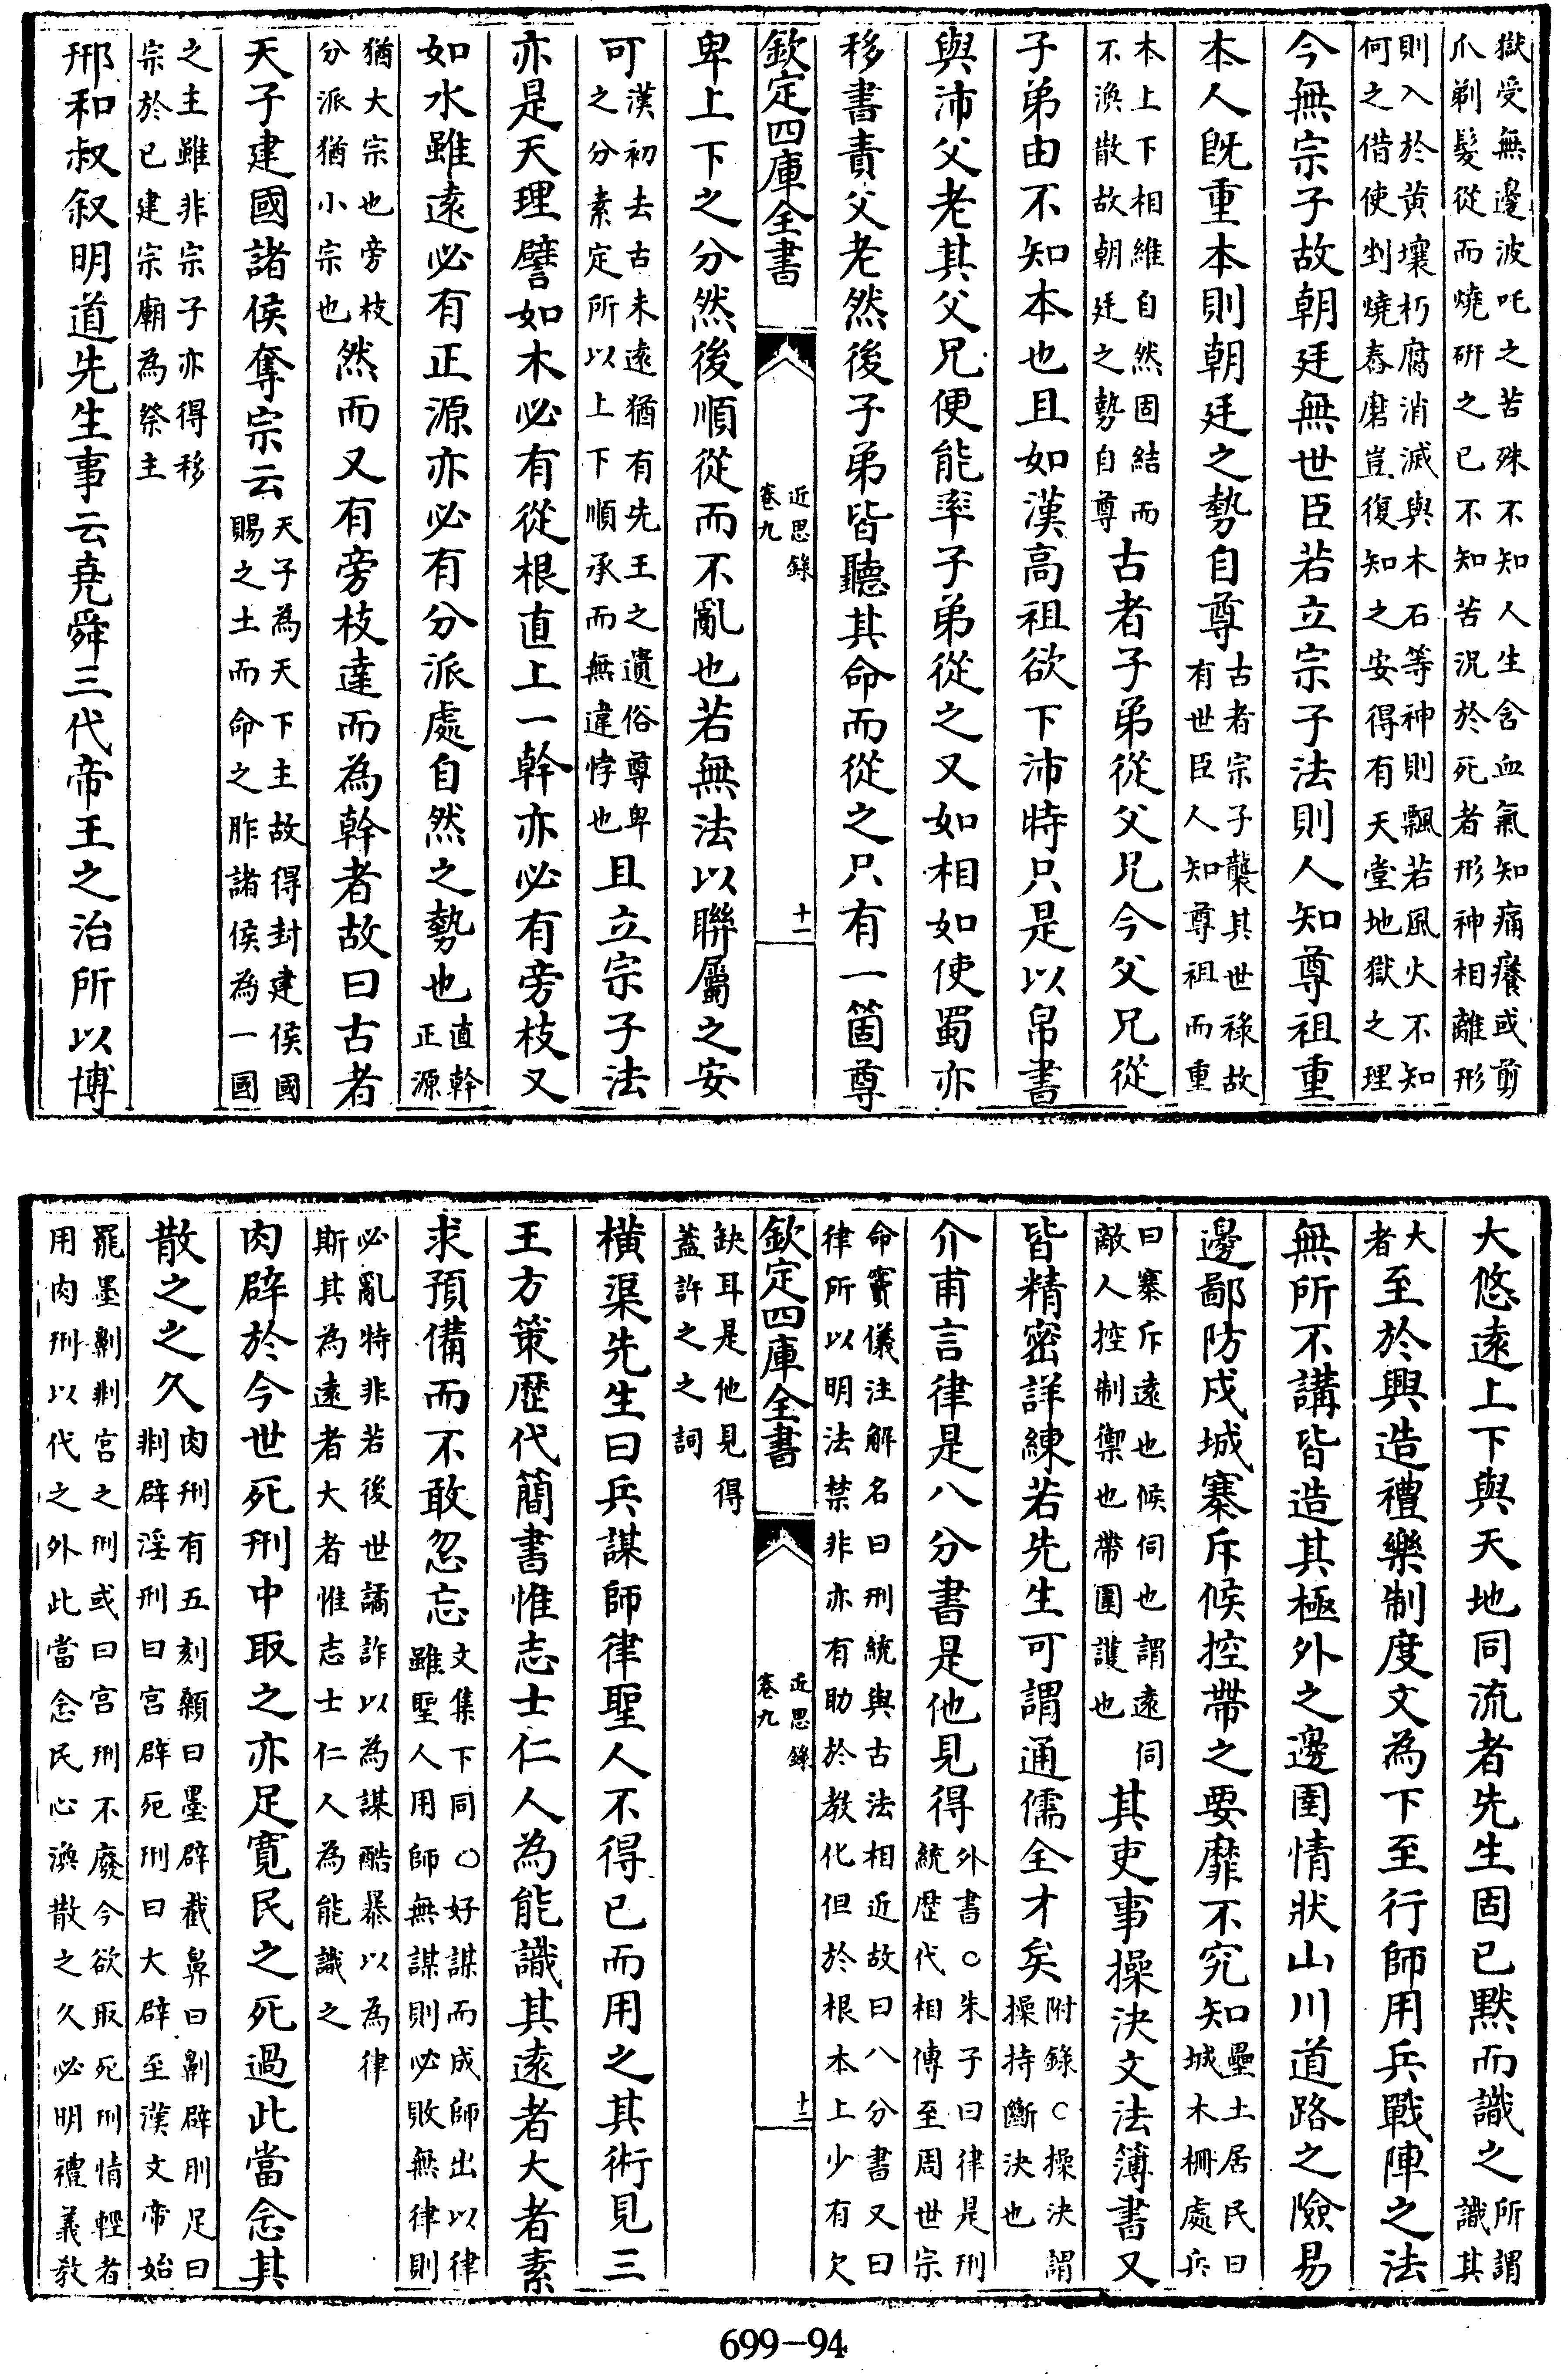 獄受無邊波吒之苦殊不知人生含血氣知痛癢或剪
爪剃髮從而燒硏之已不知苦況於死者形神相離形
則入於黄壤朽腐消滅與木石等神則飄若風火不知
何之借使剉燒舂磨豈復知之安得有天堂地獄之理
今無宗子故朝廷無世臣若立宗子法則人知尊祖重
本人既重本則朝廷之勢自尊古者宗子襲其世祿故
有世臣人知尊祖而重
本上下相維自然固結而
不渙散故朝廷之勢自尊古者子弟從父兄今父兄從
子弟由不知本也且如漢高祖欲下沛時只是以帛書
與沛父老其父兄便能率子弟從之又如相如使蜀亦
移書責父老然後子弟皆聽其命而從之只有一箇尊
欽定四庫全書 近思錄
卷九 十一
卑上下之分然後順從而不亂也若無法以聯屬之安
可漢初去古未遠猶有先王之遺俗尊卑
之分素定所以上下順承而無違悖也且立宗子法
亦是天理譬如木必有從根直上一幹亦必有旁枝又
如水雖遠必有正源亦必有分派處自然之勢也直幹
正源
猶大宗也旁枝
分派猶小宗也然而又有旁枝達而為幹者故曰古者
天子建國諸侯奪宗云天子為天下主故得封建侯國
賜之土而命之胙諸侯為一國
之主雖非宗子亦得移
宗於已建宗廟為祭主
邢和叔叙明道先生事云堯舜三代帝王之治所以博
大悠遠上下與天地同流者先生固已默而識之所謂
識其
大
者至於興造禮樂制度文為下至行師用兵戰陣之法
無所不講皆造其極外之邊圉情狀山川道路之險易
邊鄙防戍城寨斥候控帶之要靡不究知壘土居民曰
城木柵處兵
曰寨斥遠也候伺也謂遠伺
敵人控制禦也帶圍護也其吏事操決文法簿書又
皆精密詳練若先生可謂通儒全才矣附錄○操決謂
操持斷決也
介甫言律是八分書是他見得外書○朱子曰律是刑
統歴代相傳至周世宗
命竇儀注解名曰刑統與古法相近故曰八分書又曰
律所以明法禁非亦有助於教化但於根本上少有欠
欽定四庫全書 近思錄
卷九 十二
缺耳是他見得
蓋許之之詞
橫渠先生曰兵謀師律聖人不得已而用之其術見三
王方策歴代簡書惟志士仁人為能識其遠者大者素
求預備而不敢忽忘文集下同○好謀而成師出以律
雖聖人用師無謀則必敗無律則
必亂特非若後世譎詐以為謀酷暴以為律
斯其為遠者大者惟志士仁人為能識之
肉辟於今世死刑中取之亦足寬民之死過此當念其
散之之久肉刑有五刻顙曰墨辟截鼻曰劓辟刖足曰
剕辟淫刑曰宫辟死刑曰大辟至漢文帝始
罷墨劓剕宫之刑或曰宫刑不廢今欲取死刑情輕者
用肉刑以代之外此當念民心渙散之久必明禮義教
699-94